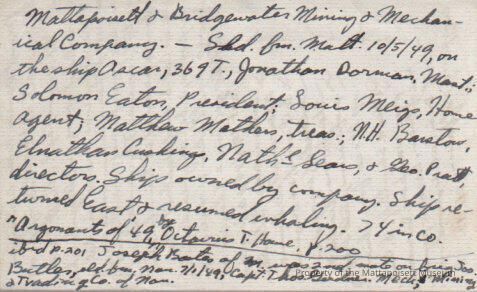 Mattapoisett & Bridgewater Mining & Mechan-
ical Company. — Sld. fm. Matt. 10/5/49, on
the ship Oscar, 369 T., Jonathan Dorman, Mast.;
Solomon Eaton, President; Louis Meigs, Home
agent; Matthew Mathers, treas.; N.H. Barstow,
Elnathan Cushing, Nath'l Sears, & Geo. Pratt,
directors. Ship owned by company. Ship re-
turned East & resumed whaling. 74 in co.
"Argonauts of '49," by Octavius T. Howe, p. 200
ibid p. 201 Joseph Bates of M. was 2nd mate on
Butler, sld. fm. Nan. 7/1/49, Capt. Thos Gardner. Mech. & Mining
& Trading Co. of Nan.
Property of the Mattapoisett Museum